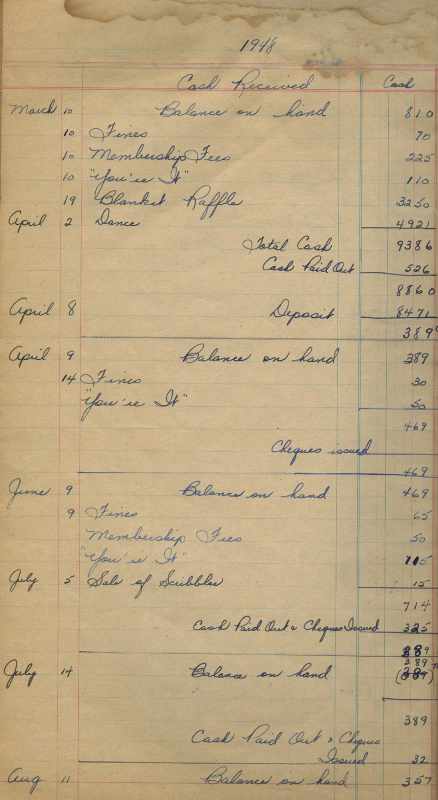 1948
Cash Received Cash
March 10 Balance on hand 810
10 Fines 70
10 Membership Fees 225
10 "You're It" 110
19 Blanket Raffle 3250
April 2 Dance 4921
Total Cash 9386
Cash Paid Out 526
8860
April 8 Deposit 8471
389
April 9 Balance on hand 389
14 Fines 30
"You're It" 50
469
Cheques issued
469
June 9 Balance on hand 469
9 Fines 65
Membership Fees 50
"You're It" 115
July 5 Sale of Scribbler 15
714
Cash Paid Out & Cheques Issued 325
389
July 14 Balance on hand
389
Cash Paid Out & Cheques
Issued 32
Aug 11 Balance on hand 357